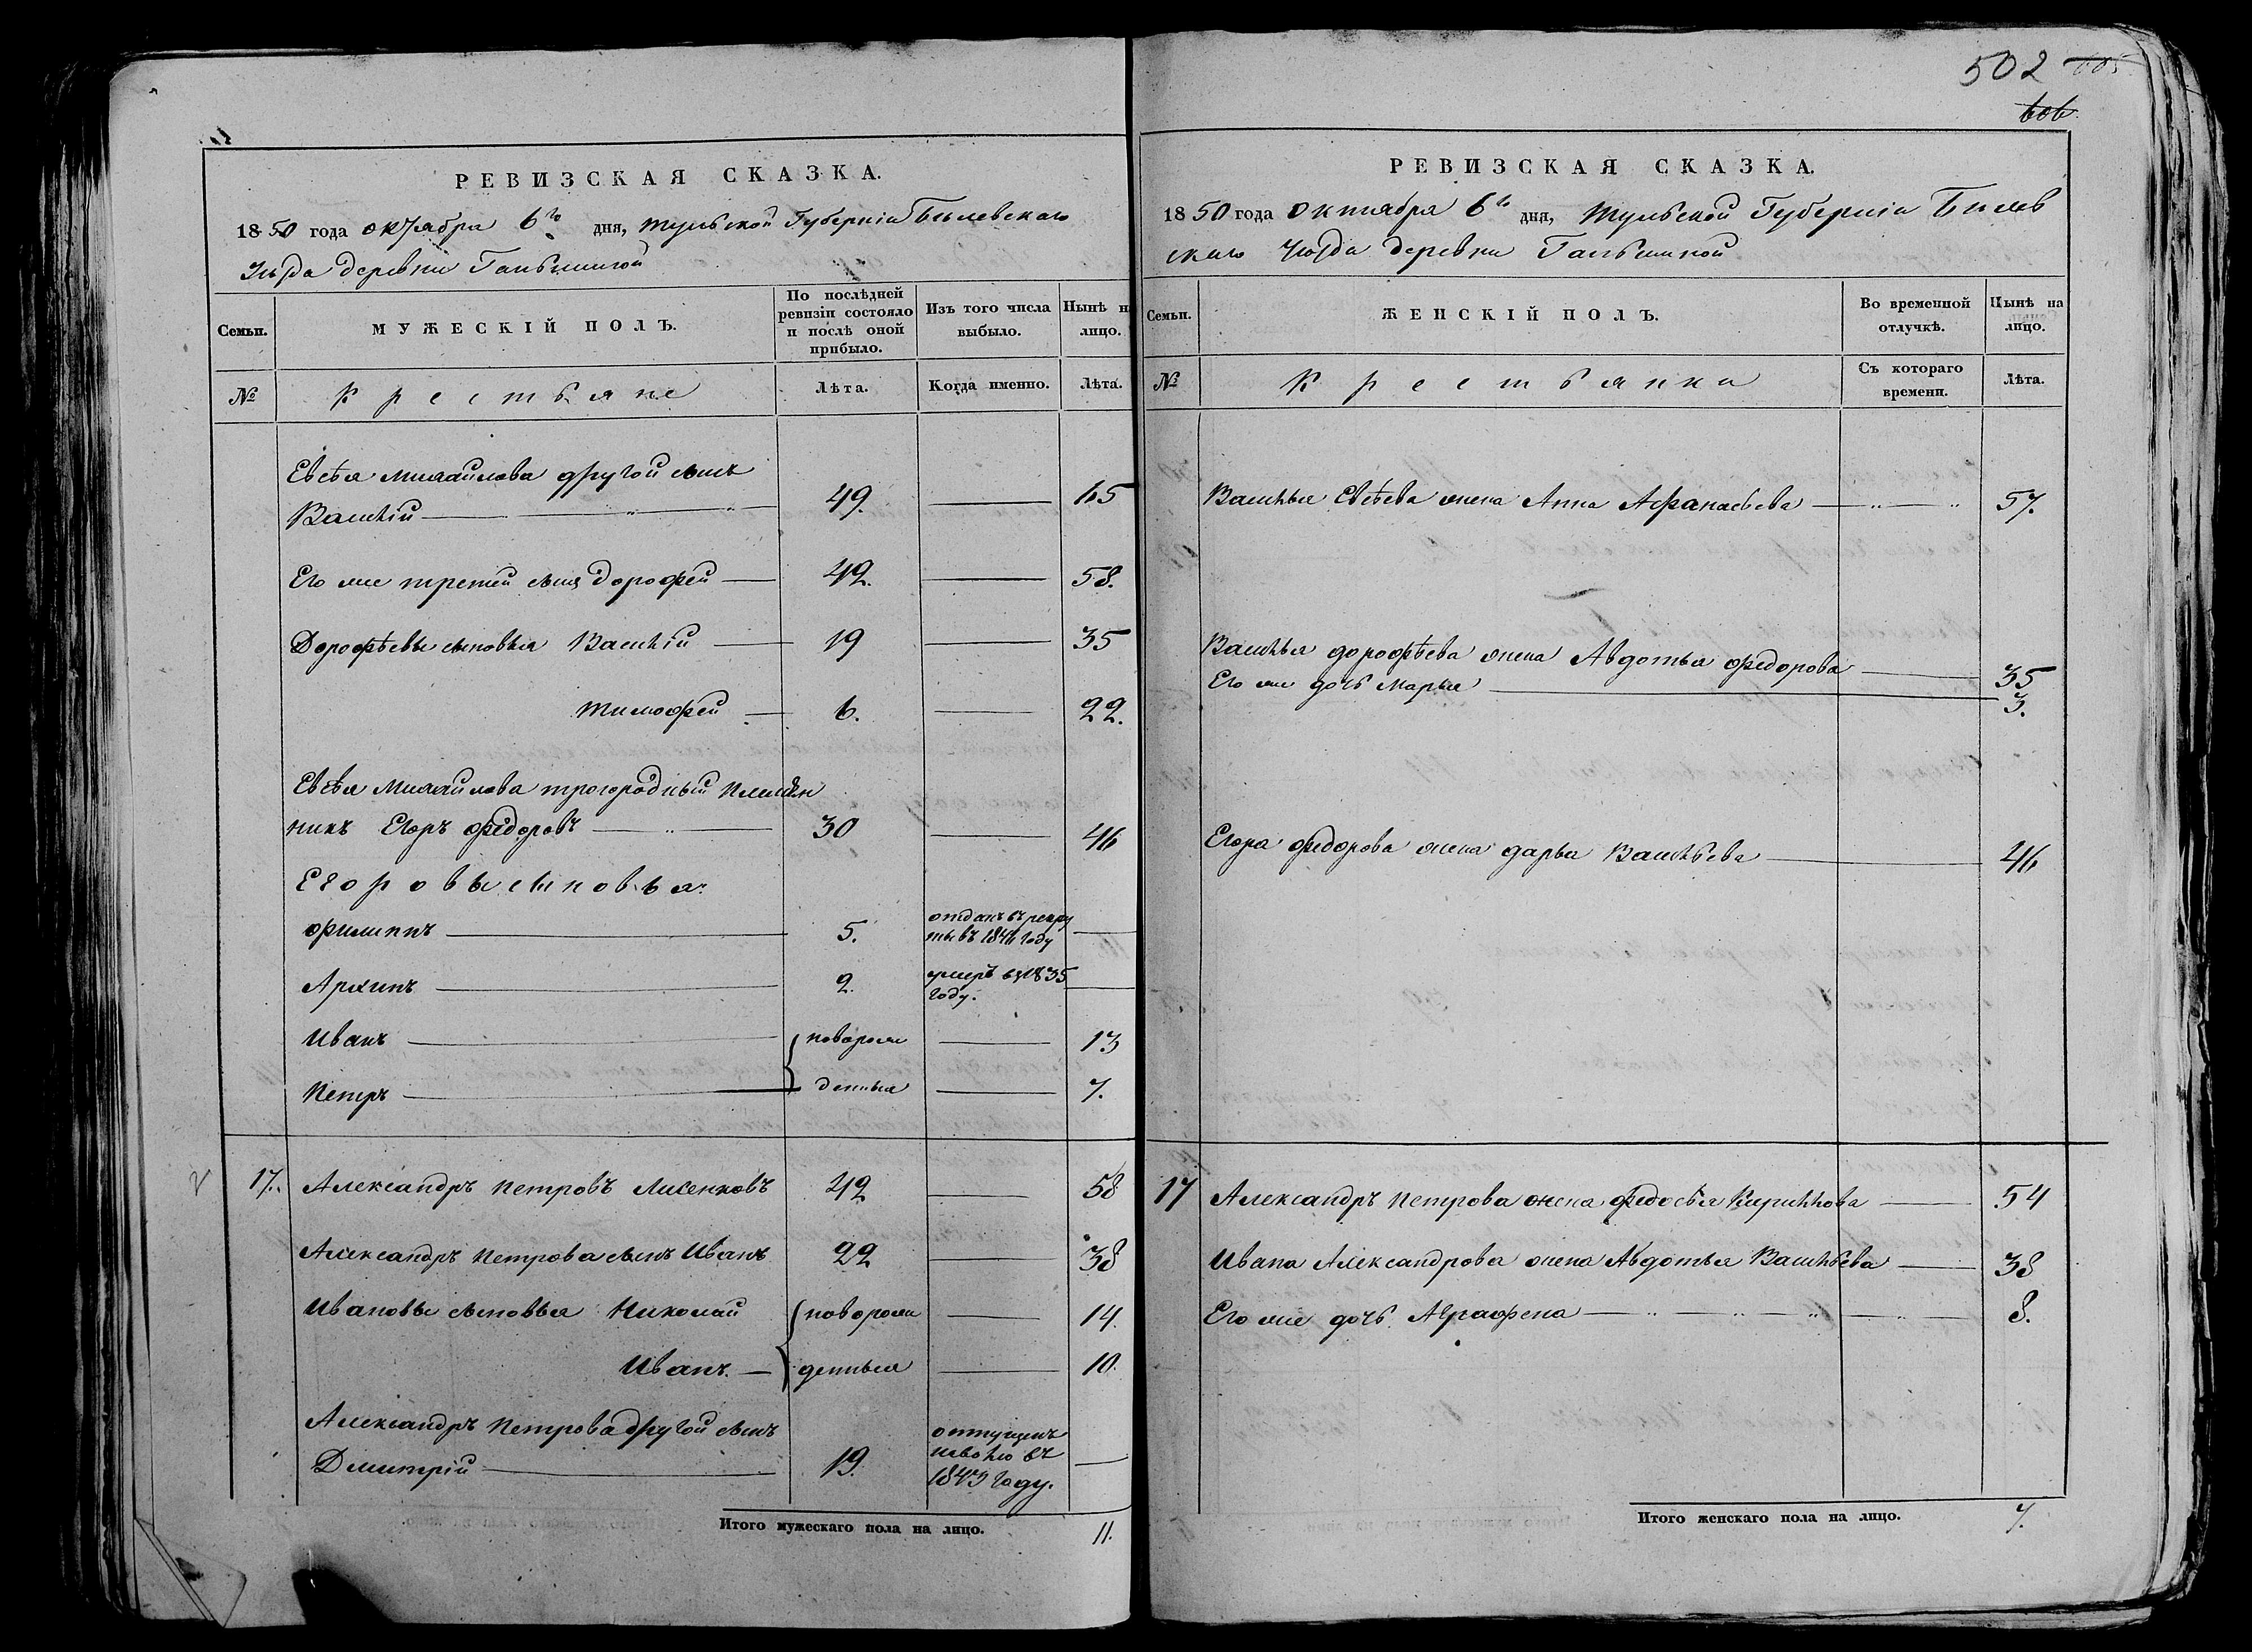 502 605
606.
РЕВИЗСКАЯ СКАЗКА.
1850 года октября 6го дня, Тульской Губернiи Бѣлевскаго
уѣзда деревни
Семьи.
МУЖЕСКІЙ ПОЛЪ.
По послѣдней ревизіи состояло и послѣ оной прибыло.
Изъ того числа выбыло.
Нынѣ на лицо.
№
Крестьяне
Лѣта.
Когда именно.
Лѣта.
Евсѣя Михайлова другой сынъ
Василiй — 49. — 65
Его же третей сынъ Дорофей — 42. — 58.
Дорофѣевы сыновья Василiй — 19 — 35
Тимофей — 6. — 22.
Евсѣя Михайлова троюродный племян
никъ Егоръ Федоровъ — 30 — 46
Егоровы сыновья:
Филиппъ — 5. отданъ въ рекру
ты въ 1846 году —
Архипъ — 2. умеръ въ 1835
году. —
Иванъ — новорож — 13
Петръ — денныя — 7.
17. Александръ Петровъ Лисенковъ 42 — 58
Александръ Петрова сынъ Иванъ 22 — 38
Ивановы сыновья Николай новорож — 14.
Иванъ. — денныя — 10.
Александръ Петрова другой сынъ
Дмитрiй — 19. отпущенъ
на волю въ
1843 году. —
Итого мужескаго пола на лицо. 11.
РЕВИЗСКАЯ СКАЗКА.
1850 года октября 6го дня, Тульской Губернiи Бѣлев
скаго уѣзда деревни
Семьи.
ЖЕНСКІЙ ПОЛЪ.
Во временной отлучкѣ.
Нынѣ на лицо.
№
Крестьянки
Съ котораго времени.
Лѣта.
Василья Евсѣева жена Анна Афанасьева — 57.
Василья Дорофѣева жена Авдотья Федорова — 35
Его же дочь Марья — 3.
Егора Федорова жена Дарья Васильева — 46
17 Александръ Петрова жена Федосья Кирилова — 54
Ивана Александрова жена Авдотья Васильева — 38
Его же дочь Аграфена — 8.
Итого женскаго пола на лицо. 7.